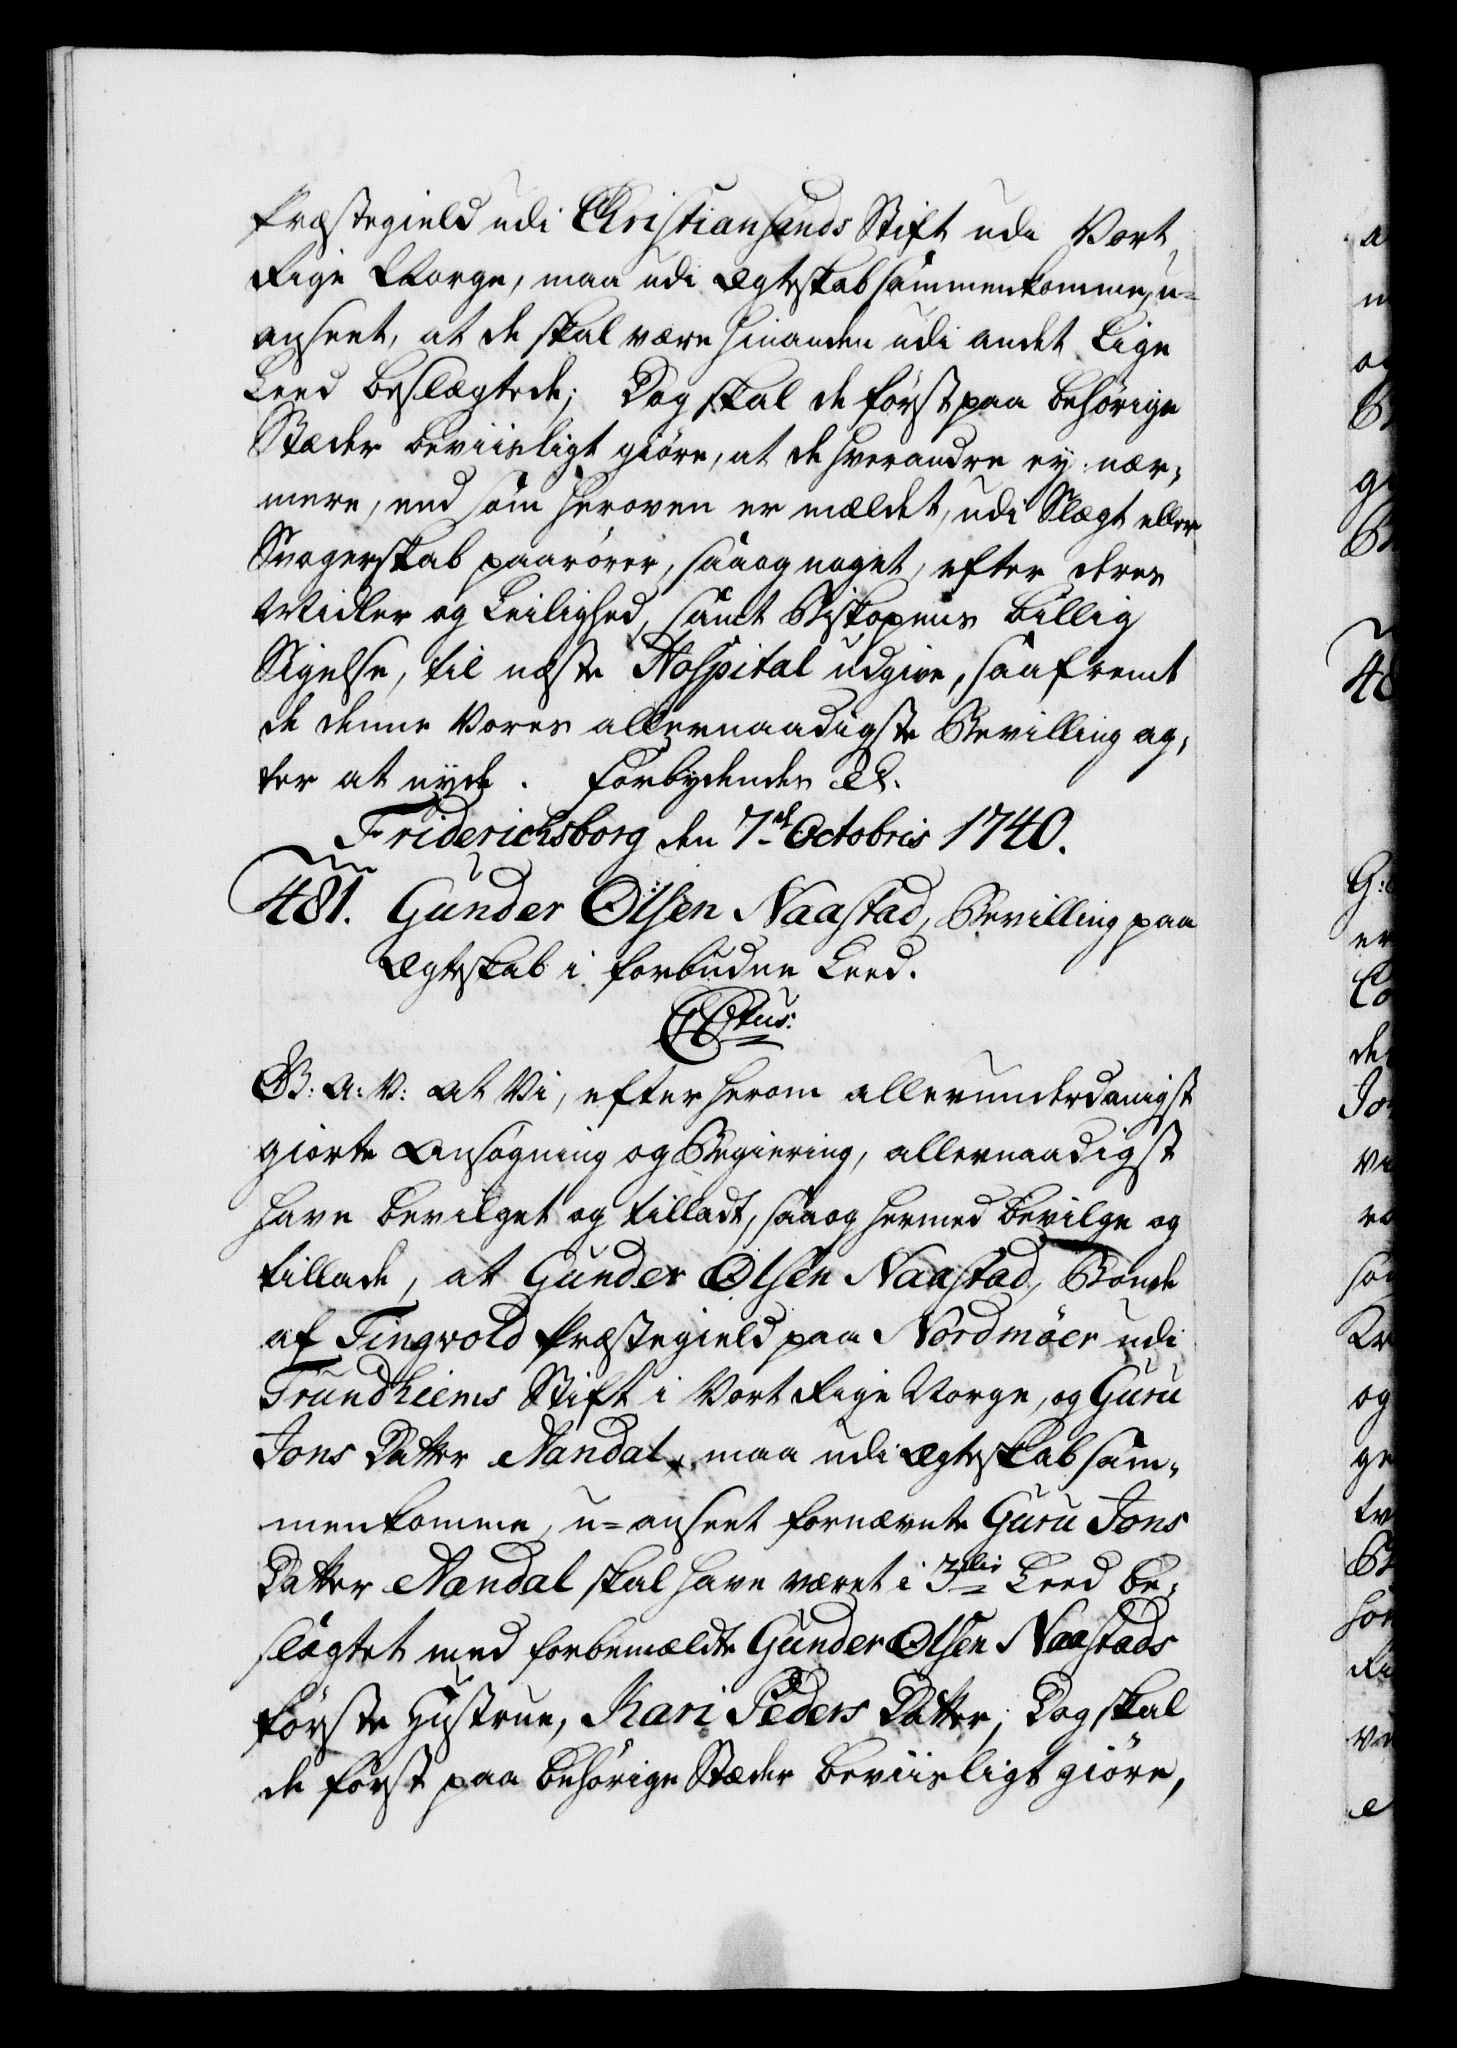 Præstegield udi Christiansands Stift udi Vort
Rige Norge, maa udi Ægteskab sammenkomme, u-
anseet, at de skal være hinanden udi andet Lige
Leed beslægtede; Dog skal de først paa behörige
Stæder beviisligt giöre, at de hverandre ey nær-
mere, end som heroven er mældet, udi Slægt eller
Svogerskab paarörer, saa og noget, efter deres
Midler og Leilighed, samt Biskopens billig
Sigelse, til næste Hospital udgive, saafremt
de denne Vores allernaadigste Bevilling ag-
ter at nyde. Forbydendes &c.
Friderichsborg den 7de Octobris 1740.
481. Gunder Olsen Naastad, Bevilling paa
Ægteskab i forbudne Leed.
CCtus:
G: A: V: at Vi, efter herom allerunderdanigst
giorte Ansögning og Begiering, allernaadigst
have bevilget og tilladt, saa og hermed bevilge og
tillade, at Gunder Olsen Naastad, Bonde
af Tingvold Præstegield paa Nordmöer udi
Trundhiems Stift i Vort Rige Norge, og Guru
Jons Datter Nandal, maa udi Ægteskab sam-
menkomme, u-anseet fornævnte Guru Jons
Datter Nandal skal have været i 3die Leed be-
slægtet med forbemældte Gunder Olsen Naastads
förste Hustrue, Kari Peders Datter; Dog skal
de först paa behörige Stæder beviisligt giöre,